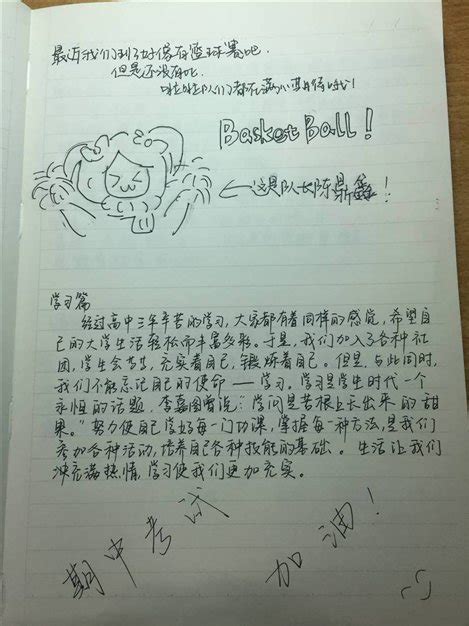 最近我们到了好像有篮球赛吧.
但是还没有比.
啦啦队们都在满心期待哦!
Basket Ball!
←这是队长陈鼎鑫!
学习篇
经过高中三年辛苦的学习,大家都有着同样的感觉,希望自
己的大学生活轻松而丰富多彩。于是,我们加入了各种社
团,学生会等等,充实着自己,锻炼着自己。但是,与此同时,
我们不能忘记自己的使命——学习。学习是学生时代一个
永恒的话题,李嘉图曾说:“学问是苦根上长出来的甜
果。”努力使自己学好每一门功课,掌握每一种方法,是我们
参加各种活动,培养自己各种技能的基础。生活让我们
充满热情,学习使我们更加充实。
期中考试
加油!